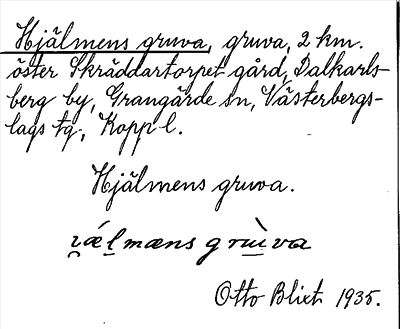 Hjälmens gruva, gruva, 2 km.
öster Skräddartorpet gård, Dalkarls-
berg by, Grangärde sn, Västerbergs-
lags tg, Kopp l.
Hjälmens gruva.
Otto Blixt 1935.